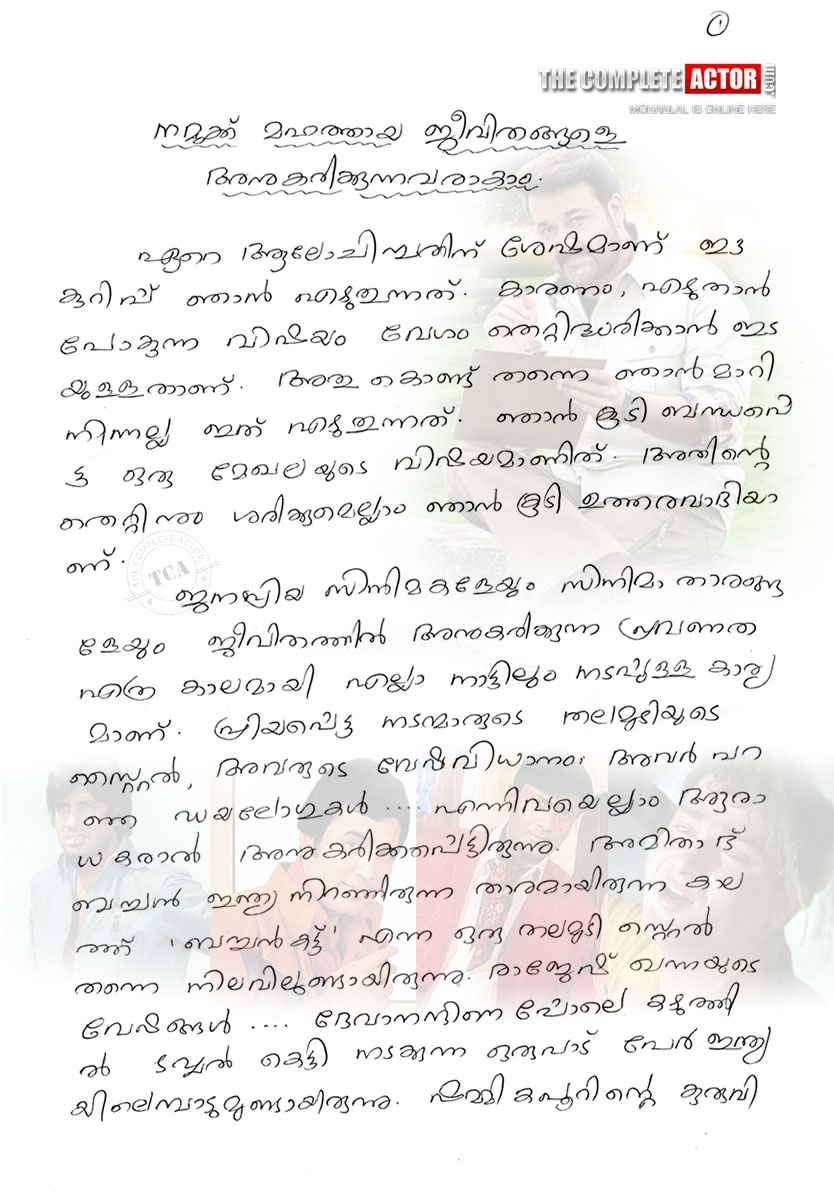 ①
THE COMPLETE ACTOR .COM
MOHANLAL IS ONLINE HERE
നമുക്ക് മഹത്തായ ജീവിതങ്ങളെ
അനുകരിക്കുന്നവരാകാം.
ഏറെ ആലോചിച്ചതിന് ശേഷമാണ് ഈ
കുറിപ്പ് ഞാൻ എഴുതുന്നത്. കാരണം, എഴുതാൻ
പോകുന്ന വിഷയം വേഗം തെറ്റിദ്ധരിക്കാൻ ഇട
യുള്ളതാണ്. അതു കൊണ്ട് തന്നെ ഞാൻ മാറി
നിന്നല്ല ഇത് എഴുതുന്നത്. ഞാൻ കൂടി ബന്ധപ്പെ
ട്ട ഒരു മേഖലയുടെ വിഷയമാണിത്. അതിന്റെ
തെറ്റിനും ശരിക്കുമെല്ലാം ഞാൻ കൂടി ഉത്തരവാദിയാ
ണ്.
THE COMPLETE ACTOR
TCA
ജനപ്രിയ സിനിമകളേയും സിനിമാ താരങ്ങ
ളേയും ജീവിതത്തിൽ അനുകരിക്കുന്ന പ്രവണത
എത്ര കാലമായി എല്ലാ നാട്ടിലും നടപ്പുള്ള കാര്യ
മാണ്. പ്രിയപ്പെട്ട നടന്മാരുടെ തലമുടിയുടെ
സ്റ്റൈൽ, അവരുടെ വേഷവിധാനം, അവർ പറ
ഞ്ഞ ഡയലോഗുകൾ .... എന്നിവയെല്ലാം ആരാ
ധകരാൽ അനുകരിക്കപ്പെട്ടിരുന്നു. അമിതാഭ്
ബച്ചൻ ഇന്ത്യ നിറഞ്ഞിരുന്ന താരമായിരുന്ന കാല
ത്ത് 'ബച്ചൻകട്ട്' എന്ന ഒരു തലമുടി സ്റ്റൈൽ
തന്നെ നിലവിലുണ്ടായിരുന്നു. രാജേഷ് ഖന്നയുടെ
വേഷങ്ങൾ .... ദേവാനന്ദിനെ പോലെ കഴുത്തി
ൽ ടവ്വൽ കെട്ടി നടക്കുന്ന ഒരുപാട് പേർ ഇന്ത്യ
യിലെമ്പാടുമുണ്ടായിരുന്നു. ഷമ്മി കപൂറിന്റെ കുരുവി